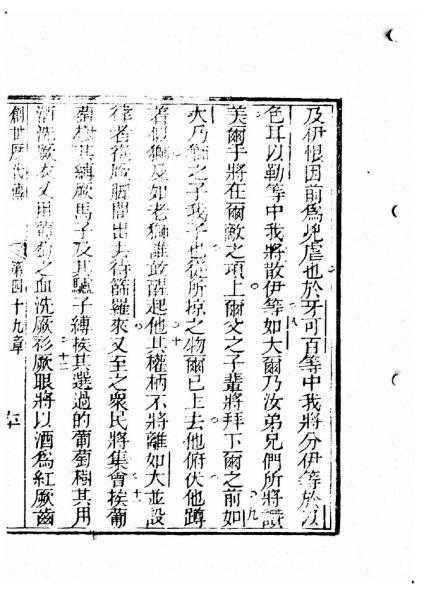 及伊恨因前為兇虐也於牙可百等中我將分伊等於以
色耳以勒等中我將散伊等如大爾乃汝弟兄們所將讚
八
美爾手將在爾敵之項上爾父之子輩將拜下爾之前如
九
大乃獅之子我子也從所掠之物爾已上去他俯伏他蹲
著似獅及如老獅誰敢醒起他其權柄不將離如大並設
十
律者從厥脚間出去待篩羅來又至之衆民將集會挨葡
十一
萄樹其縛厥馬子及其驢子縛挨其選過的葡萄樹其用
十二
酒洗厥衣又用葡萄之血洗厥衫厥眼將以酒為紅厥齒
創世歷代傳
第四十九章